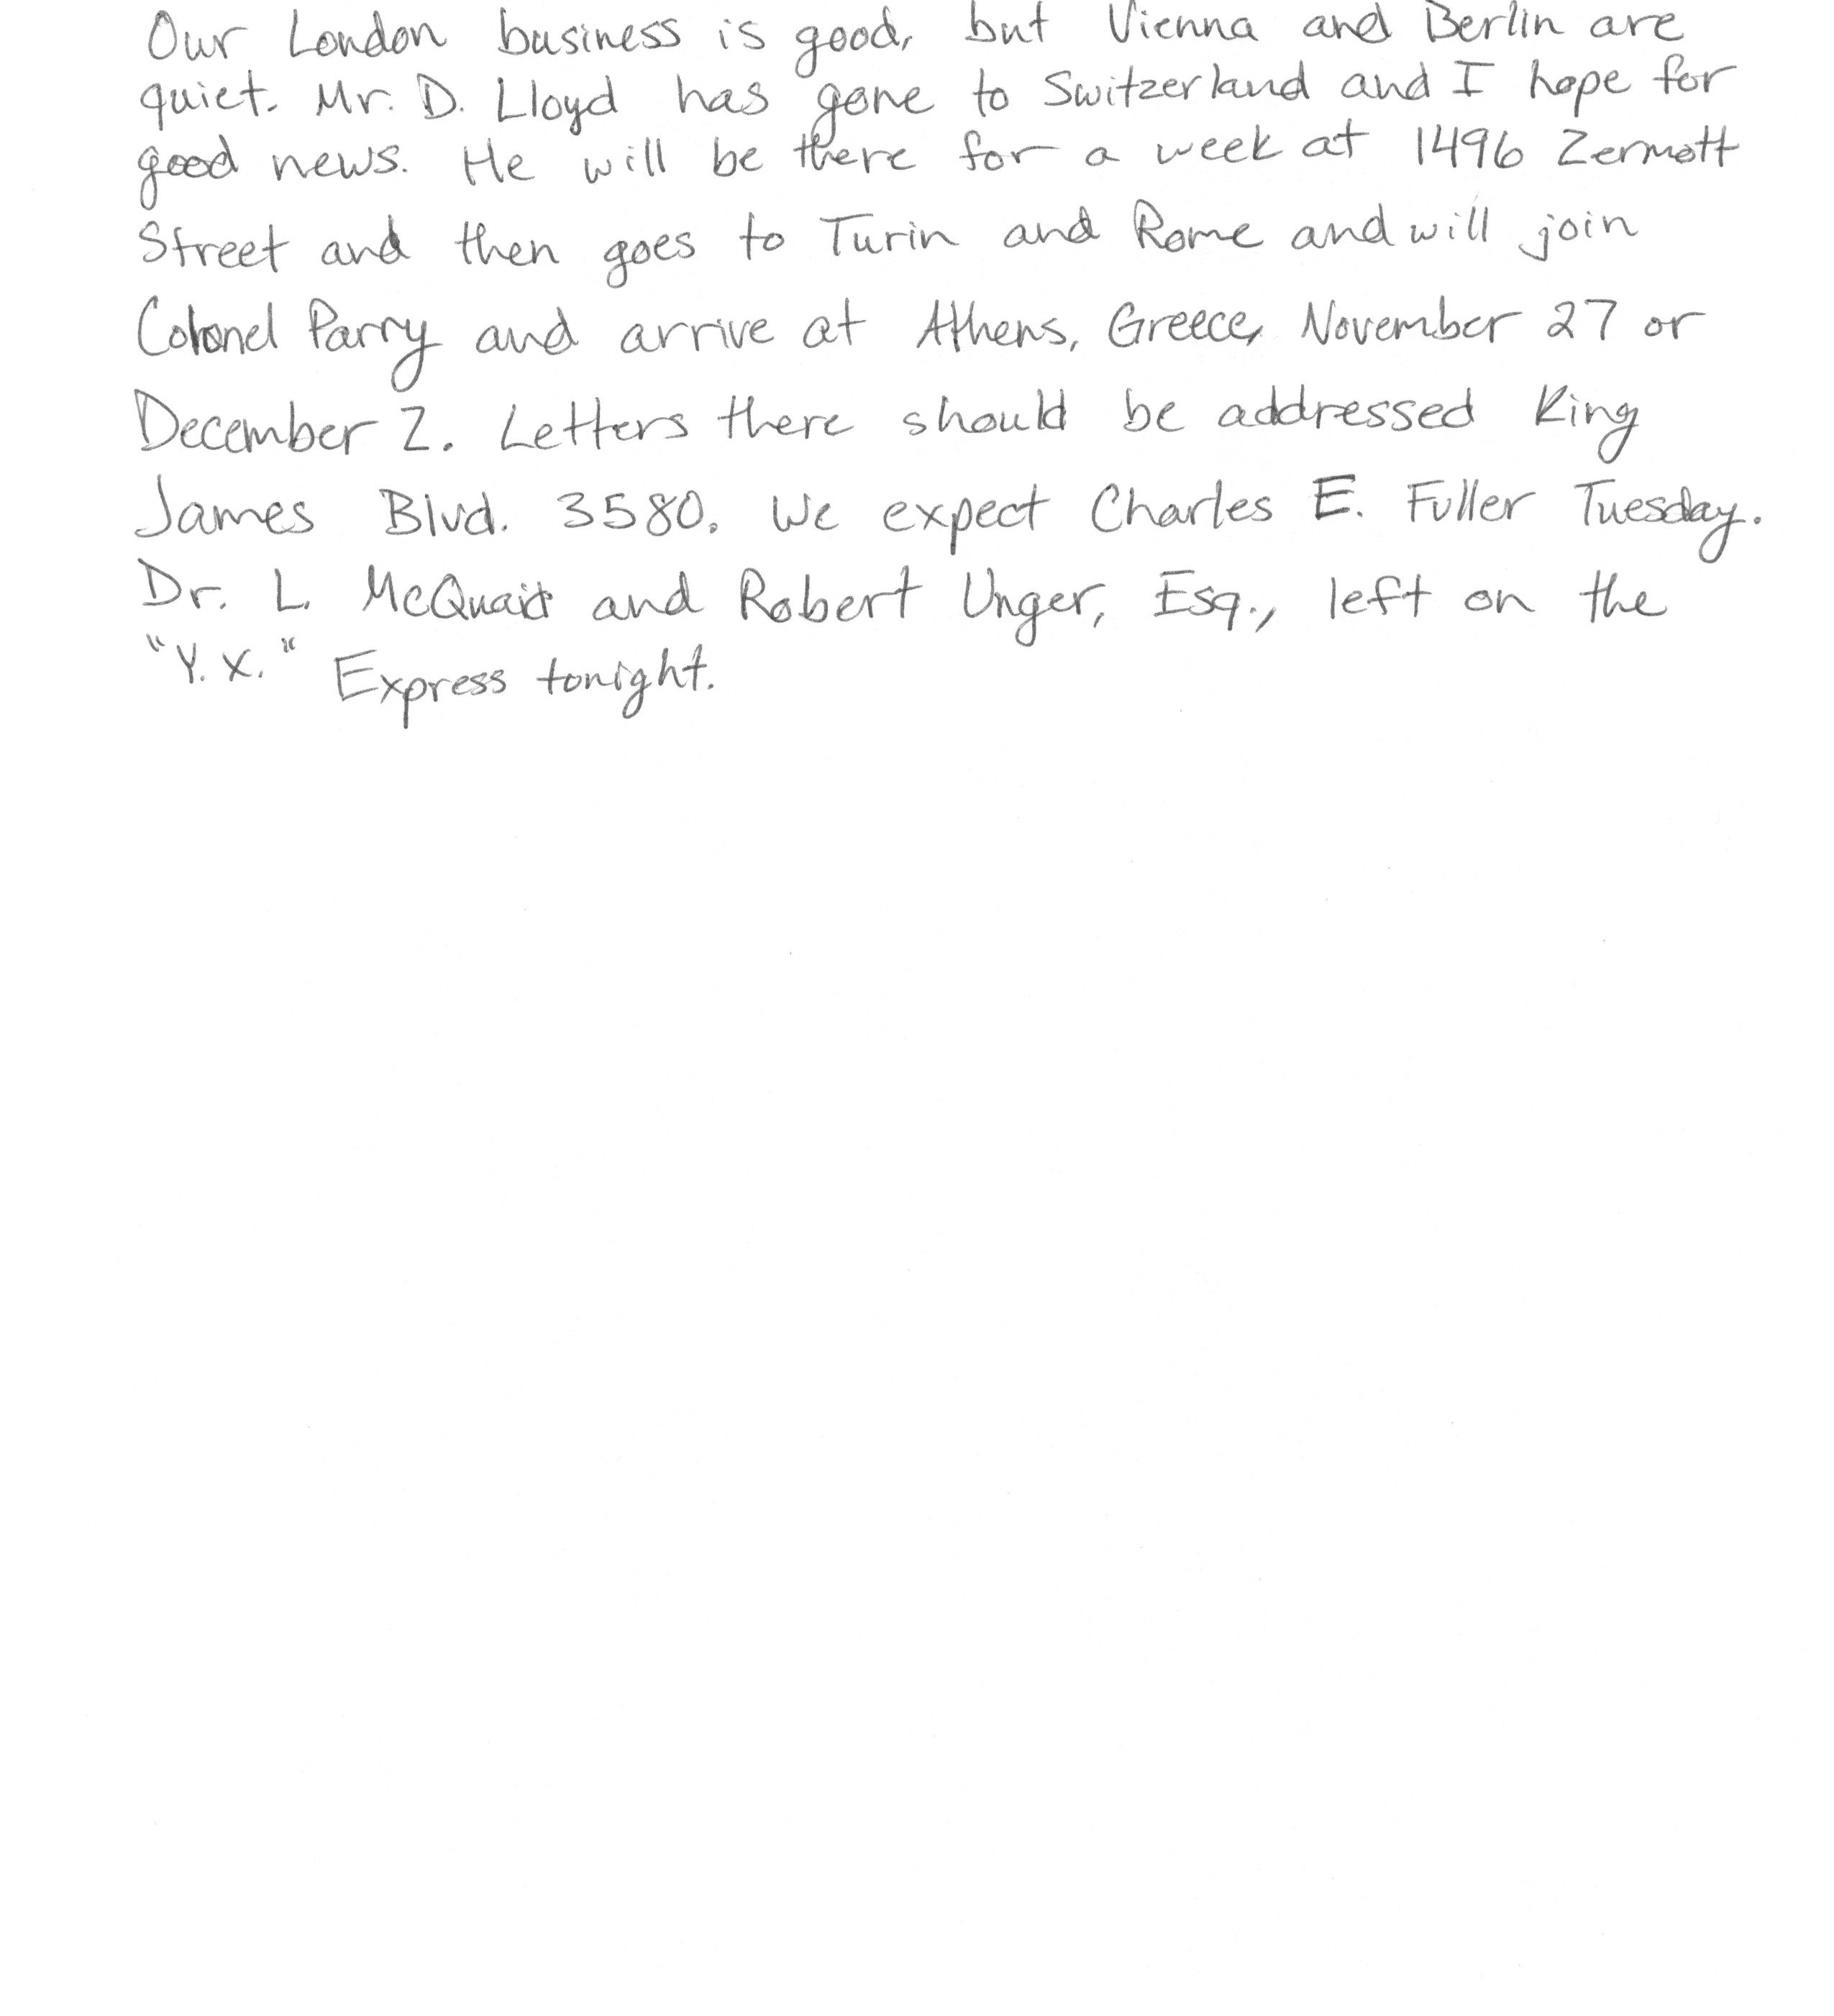 Our London business is good, but Vienna and Berlin are
quiet. Mr. D. Lloyd has gone to Switzerland and I hope for
good news. He will be there for a week at 1496 Zermott
Street and then goes to Turin and Rome and will join
Colonel Parry and arrive at Athens, Greece, November 27 or
December 2. Letters there should be addressed King
James Blvd. 3580. We expect Charles E. Fuller Tuesday.
Dr. L. McQuaid and Robert Unger, Esq., left on the
"Y.X." Express tonight.